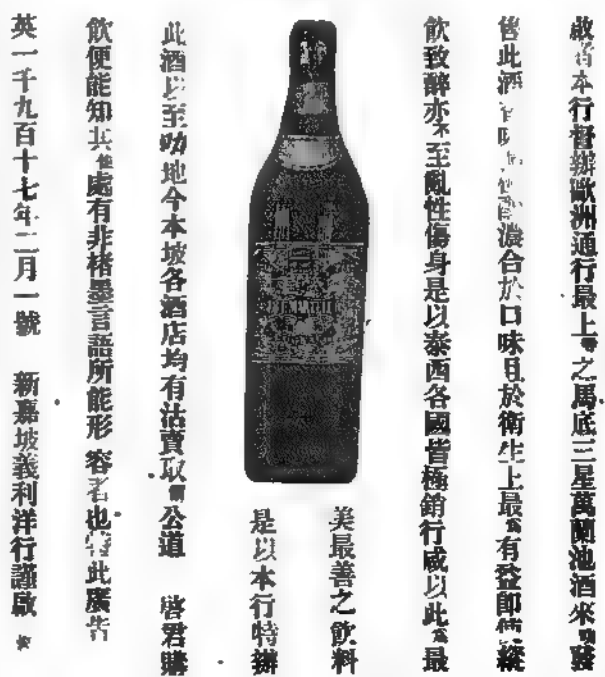 啟者本行督辦歐洲通行最上之馬底三星萬蘭池酒來叻發
售此酒味濃合於口味且於衛生上最有益即使縱
飲致醉亦不至亂性傷身是以泰西各國皆極銷行咸以此最
美最善之飲料
是以本行特辦
此酒以至叻地今本坡各酒店均有沽賣取價公道 諸君購
飲便能知其處有非楮墨言語所能形容者也特此廣告
英一千九百十七年二月一號 新嘉坡義利洋行謹啟